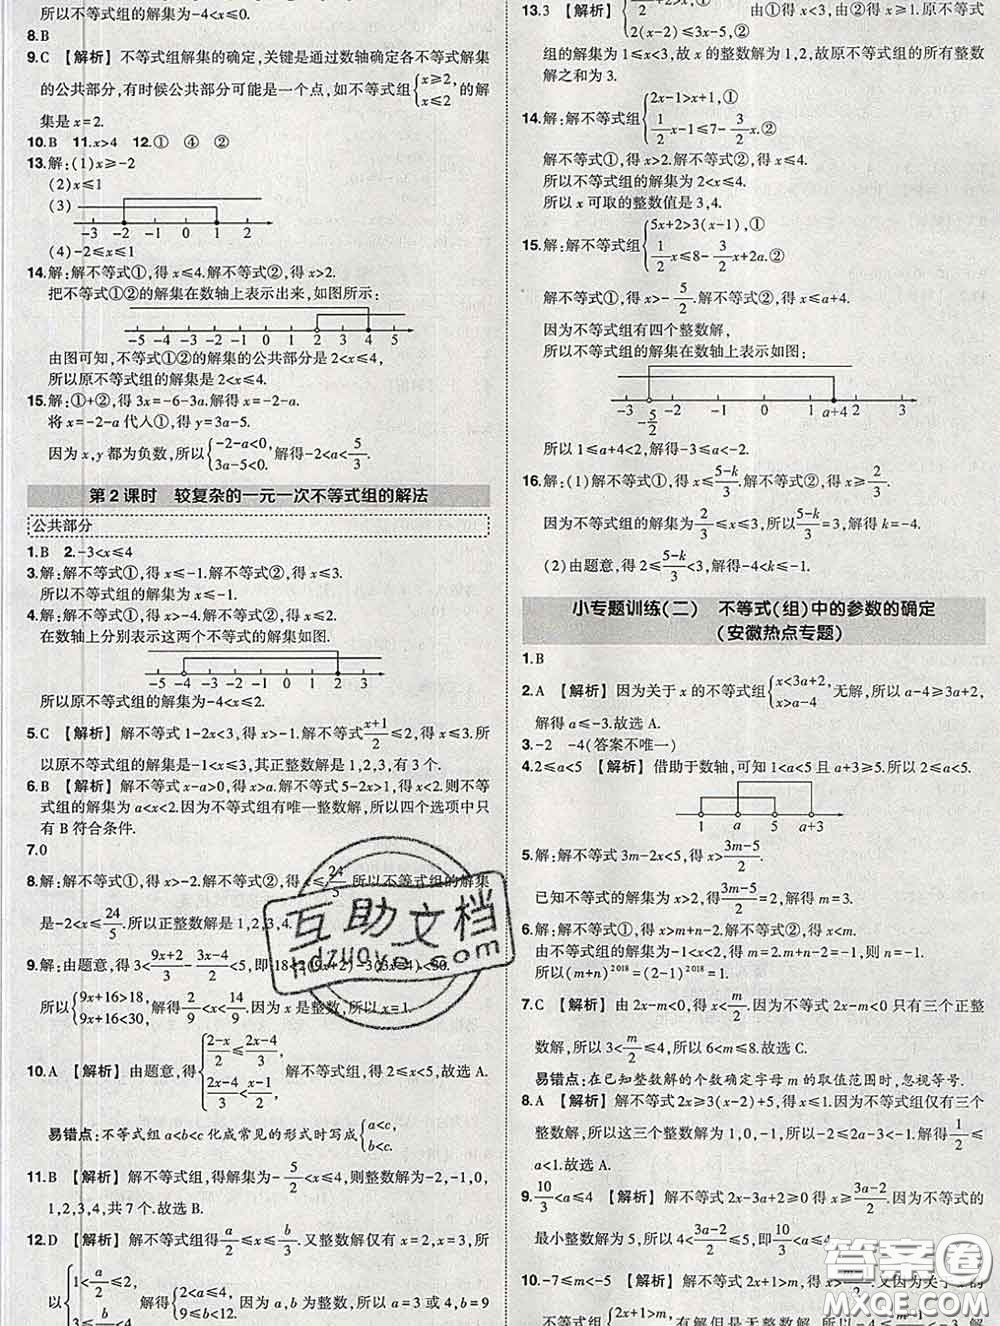 所以不等式组的解集为-4<x≤0.
8.B
9.C 【解析】 不等式组解集的确定,关键是通过数轴确定各不等式解集
的公共部分,有时候公共部分可能是一个点,如不等式组{x≥2, x≤2的解
集是 x=2.
10.B 11.x>4 12.① ④ ②
13.解:(1)x≥-2
(2)x≤1
(3)
-3 -2 -1 0 1 2
(4)-2≤x≤1
14.解:解不等式①,得 x≤4.解不等式②,得 x>2.
把不等式①②的解集在数轴上表示出来,如图所示:
-5 -4 -3 -2 -1 0 1 2 3 4 5
由图可知,不等式①②的解集的公共部分是 2<x≤4,
所以原不等式组的解集是 2<x≤4.
15.解:①+②,得 3x=-6-3a.解得 x=-2-a.
将 x=-2-a 代人①,得 y=3a-5.
因为 x,y 都为负数,所以{-2-a<0, 3a-5<0.解得-2<a<5/3.
第 2 课时 较复杂的一元一次不等式组的解法
公共部分
1.B 2.-3<x≤4
3.解:解不等式①,得 x≤-1.解不等式②,得 x≤3.
所以不等式组的解集为 x≤-1.
4.解:解不等式①,得 x>-4.解不等式②,得 x≤2.
在数轴上分别表示这两个不等式的解集如图.
-5 -4 -3 -2 -1 0 1 2 3
所以原不等式组的解集为-4<x≤2.
5.C 【解析】 解不等式 1-2x<3,得 x>-1.解不等式(x+1)/2≤2,得 x≤3.所
以原不等式组的解集是-1<x≤3,其正整数解为 1,2,3,有 3 个.
6.B 【解析】 解不等式 x-a>0,得 x>a.解不等式 5-2x>1,得 x<2.则不等
式组的解集为 a<x<2.因为不等式组有唯一整数解,所以四个选项中只
有 B 符合条件.
7.0
8.解:解不等式①,得 x>-2.解不等式②,得 x≤24/5.所以不等式组的解集
是-2<x≤24/5.所以正整数解是 1,2,3,4.
9.解:由题意,得 3<(9x+2)/3-(3x-4)/2<5,即 18<2(9x+2)-3(3x-4)<30.
所以{9x+16>18, 9x+16<30,解得2/9<x<14/9.因为 x 是整数,所以 x=1.
10.A 【解析】 由题意,得{(2-x)/2≤(2x-4)/3, (2x-4)/3<(x-1)/2. 解不等式组,得 2≤x<5,故选 A.
易错点:不等式组 a<b<c 化成常见的形式时写成{a<c, b<c.
11.B 【解析】 解不等式组,得解集为-5/2<x≤4,则整数解为-2,-1,0,
1,2,3,4,共 7 个.故选 B.
12.D 【解析】 解不等式组得a/2≤x≤b/3.又整数解仅有 x=2,x=3,所
以{1<a/2≤2, 解得{2<a≤4, 9≤b<12.因为 a,b 为整数,所以 a=3 或 4,b=9
13.3 【解析】 2(x-2)≤3x-5,② 由①得 x<3,由②得 x≥1.原不等式
组的解集为 1≤x<3,故 x 的整数解为 1,2,故原不等式组的所有整数
解之和为 3.
14.解:解不等式组{2x-1>x+1,① 1/2x-1≤7-3/2x.②
解不等式①,得 x>2.解不等式②,得 x≤4.
所以不等式组的解集为 2<x≤4.
所以 x 可取的整数值是 3,4.
15.解:解不等式组{5x+2>3(x-1),① 1/2x≤8-3/2x+2a.②
解不等式①,得 x>-5/2.解不等式②,得 x≤a+4.
因为不等式组有四个整数解,
所以不等式组的解集在数轴上表示如图:
-3 -5/2 -2 -1 0 1 a+4 2 3
所以 1≤a+4<2,解得-3≤a<-2.
16.解:(1)解不等式组,得2/3<x≤(5-k)/3.
因为不等式组的解集为2/3<x≤3,所以(5-k)/3=3,解得 k=-4.
(2)由题意,得 2≤(5-k)/3<3,解得-4<k≤-1.
小专题训练(二) 不等式(组)中的参数的确定
(安徽热点专题)
1.B
2.A 【解析】 因为关于 x 的不等式组{x<3a+2, x>a-4 无解,所以 a-4≥3a+2,
解得 a≤-3.故选 A.
3.-2 -4(答案不唯一)
4.2≤a<5 【解析】 借助于数轴,可知 1<a<5 且 a+3≥5.所以 2≤a<5.
1 a 5 a+3
5.解:解不等式 3m-2x<5,得 x>(3m-5)/2.
已知不等式的解集为 x>2,得(3m-5)/2=2,解得 m=3.
6.解:解不等式①,得 x>m+n-2.解不等式②,得 x<m.
由不等式组的解集为-1<x<2,得 m=2,m+n-2=-1,则 n=-1.
所以(m+n)²⁰¹⁸=(2-1)²⁰¹⁸=1.
7.C 【解析】 由 2x-m<0,得 x<m/2.因为不等式 2x-m<0 只有三个正整
数解,所以 3<m/2≤4,所以 6<m≤8.故选 C.
易错点:在已知整数解的个数确定字母 m 的取值范围时,忽视等号.
8.A 【解析】 解不等式 2x≥3(x-2)+5,得 x≤1.因为不等式组仅有三个
整数解,所以这三个整数解为 1,0,-1,所以-2≤2a-3<-1,解得1/2≤
a<1.故选 A.
9.10/3<a≤4 【解析】 解不等式 2x-3a+2≥0 得 x≥(3a-2)/2.因为不等式的
最小整数解为 5,所以 4<(3a-2)/2≤5,即10/3<a≤4
10.-7≤m<-5 【解析】 解不等式 2x+1>m,得 x>
不等式组{2x+1>m, 有解但是无整数
互助文档
hdzuoye.com
答案圈
MXQE.COM